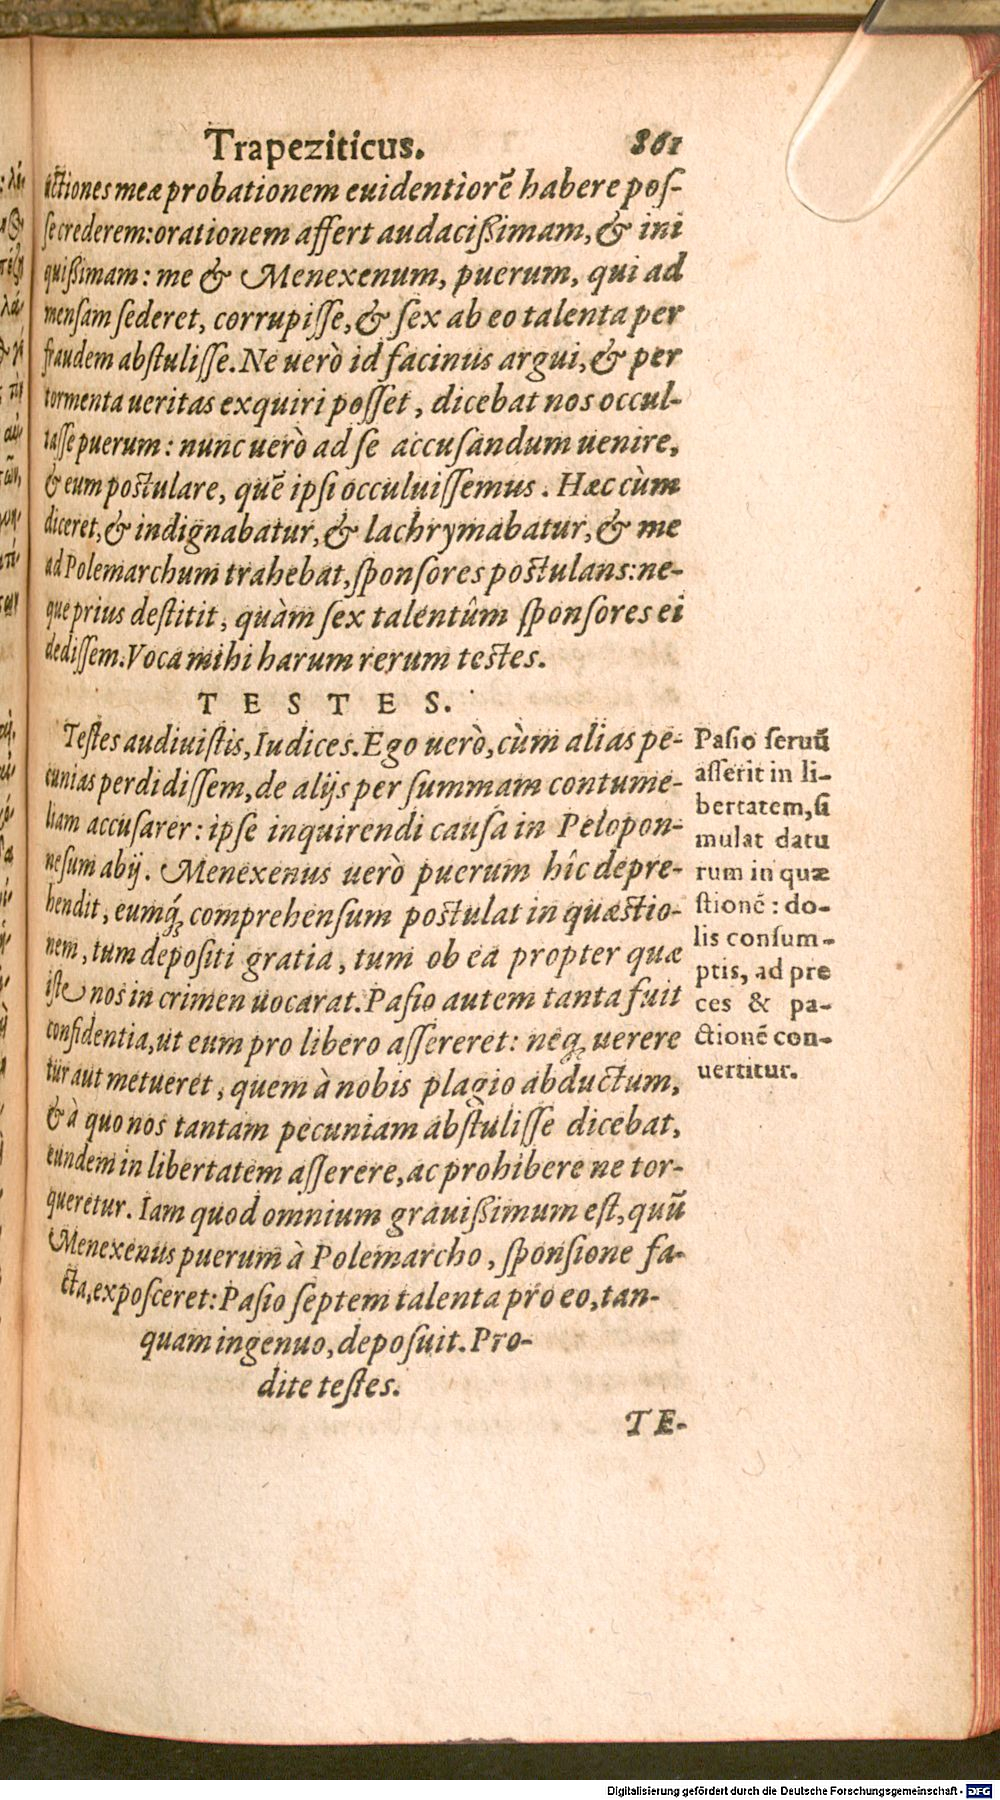 Trapeziticus. 861
ctiones meæ probationem euidentiorē habere poſ-
ſe crederem: orationem affert audacißimam, & ini
quißimam: me & Menexenum, puerum, qui ad
menſam ſederet, corrupiſſe, & ſex ab eo talenta per
fraudem abſtuliſſe. Ne uerò id facinus argui, & per
tormenta ueritas exquiri poſſet, dicebat nos occul-
taſſe puerum: nunc uerò ad ſe accuſandum uenire,
& eum poſtulare, quē ipſi occuluiſſemus. Hæc cùm
diceret, & indignabatur, & lachrymabatur, & me
ad Polemarchum trahebat, ſponſores poſtulans: ne-
que prius deſtitit, quàm ſex talentûm ſponſores ei
dediſſem. Voca mihi harum rerum teſtes.
TESTES.
Teſtes audiuiſtis, Iudices. Ego uerò, cùm alias pe-
cunias perdidiſſem, de alijs per ſummam contume-
liam accuſarer: ipſe inquirendi cauſa in Pelopon-
neſum abij. Menexenus uerò puerum hîc depre-
hendit, eumq́; comprehenſum poſtulat in quæſtio-
nem, tum depoſiti gratia, tum ob ea propter quæ
iſte nos in crimen uocarat. Paſio autem tanta fuit
confidentia, ut eum pro libero aſſereret: neq; uerere
tur aut metueret, quem à nobis plagio abductum,
& à quo nos tantam pecuniam abſtuliſſe dicebat,
eundem in libertatem aſſerere, ac prohibere ne tor-
queretur. Iam quod omnium grauißimum eſt, quū
Menexenus puerum à Polemarcho, ſponſione fa-
cta, expoſceret: Paſio ſeptem talenta pro eo, tan-
quam ingenuo, depoſuit. Pro-
dite teſtes.
TE-
Paſio ſeruū
aſſerit in li-
bertatem, ſi
mulat datu
rum in quæ
ſtionē: do-
lis conſum-
ptis, ad pre
ces & pa-
ctionē con-
uertitur.
Digitalisierung gefördert durch die Deutsche Forschungsgemeinschaft - DFG